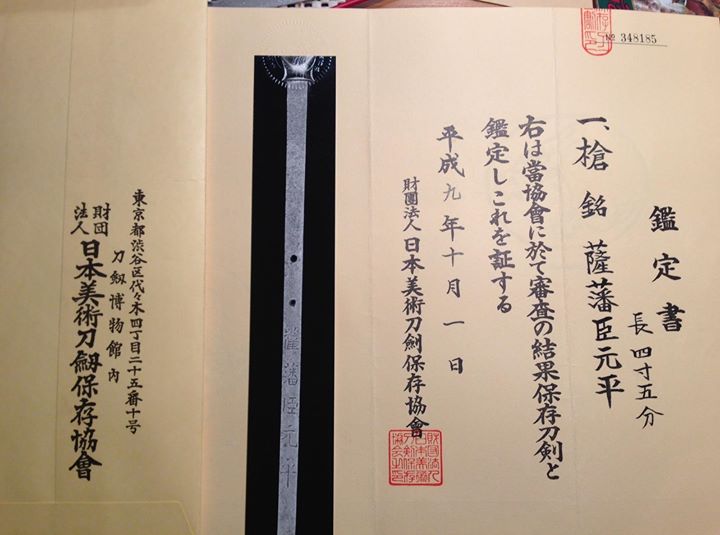 № 348185
鑑定書
一、槍 銘 薩藩臣元平
長 四寸五分
右は當協會に於て審査の結果保存刀剣と
鑑定しこれを証する
平成九年十月一日
財團法人 日本美術刀劍保存協會
薩藩臣元平
東京都渋谷区代々木四丁目二十五番十号
刀剱博物館内
財団法人 日本美術刀劔保存協會